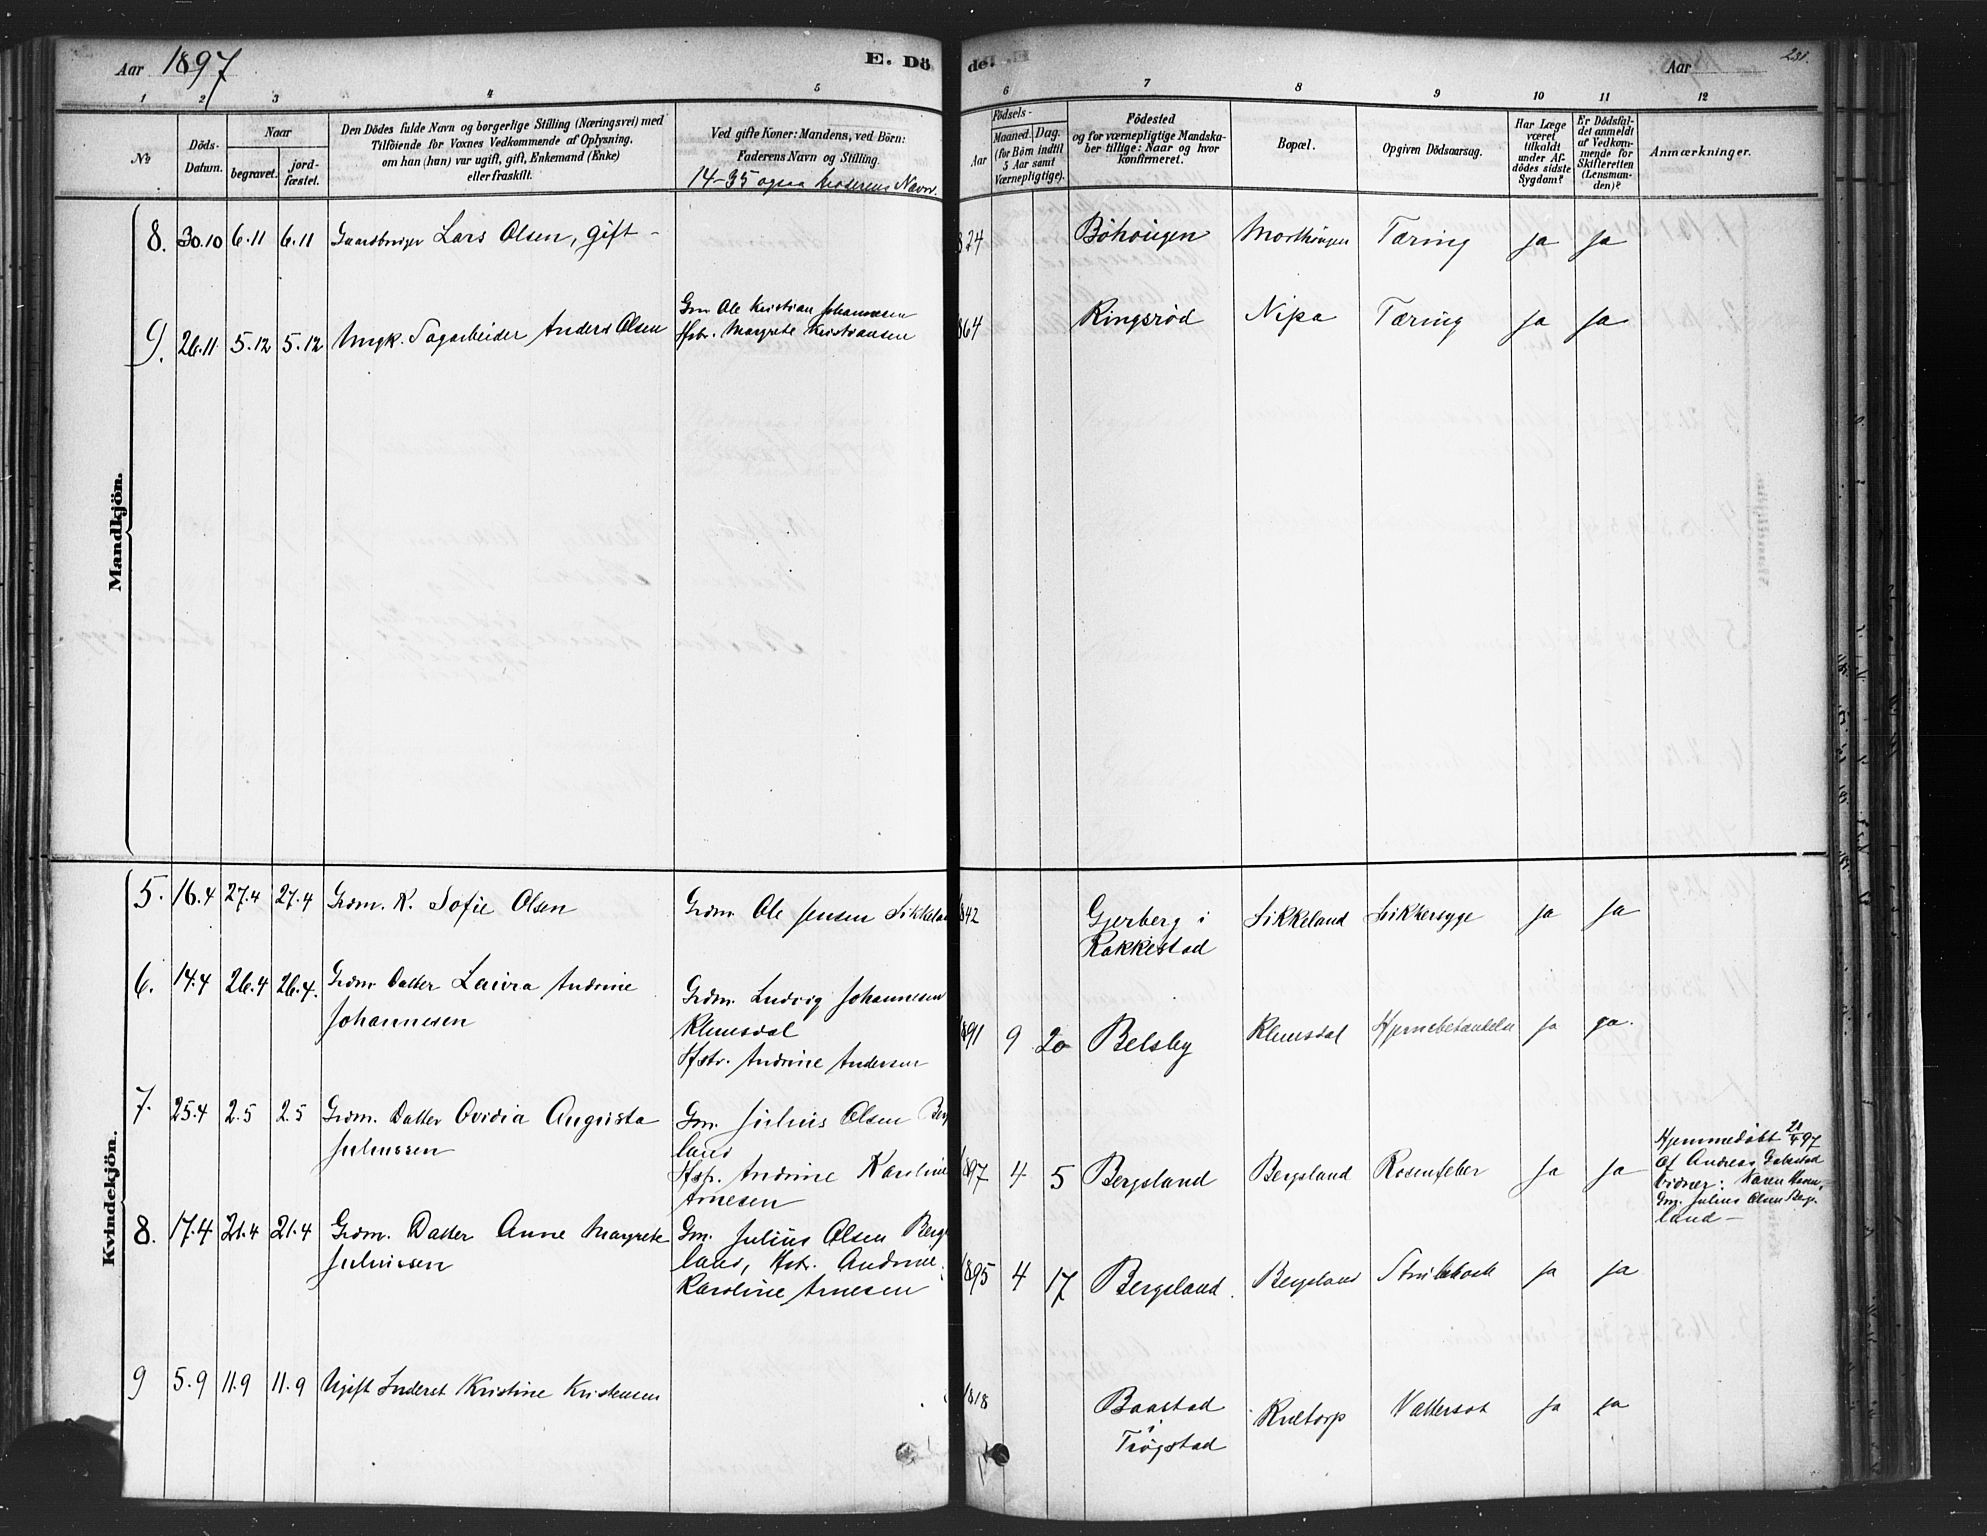 Aar 1897
E. Dö
de.
Aar
231.
1 2 3 4 5 6 7 8 9 10 11 12
No
Döds-
Datum.
Naar
begravet.
jord-
fæstet.
Den Dödes fulde Navn og borgerlige Stilling (Næringsvei) med
Tilföiende for Voxnes Vedkommende af Oplysning,
om han (hun) var ugift, gift, Enkemand (Enke)
eller fraskilt.
Ved gifte Koner: Mandens, ved Börn:
Faderens Navn og Stilling.
14-35 ogsaa Moderens Navn.
Födsels-
Aar
Maaned.
Dag.
(for Börn indtil
5 Aar samt
Værnepligtige).
Födested
og for værnepligtige Mandska-
ber tillige: Naar og hvor
konfirmeret.
Bopæl.
Opgiven Dödsaarsag.
Har Læge
været
tilkaldt
under Af-
dödes sidste
Sygdom?
Er Dödsfal-
det anmeldt
af Vedkom-
mende for
Skifteretten
(Lensman-
den)?
Anmærkninger.
Mandkjön.
8. 30.10 6.11 6.11 Gaardbruger Lars Olsen, gift - 824 Böhougen Morthougen Tæring Ja Ja
9. 26.11 5.12 5.12 Ungk. Sagarbeider Anders Olsen
Gm Ole Kristian Johannesen
Hstr. Margrete Kristiansen
864 Ringsröd Nipa Tæring Ja Ja
Kvindekjön.
5. 16.4 27.4 27.4 Grdm. K. Sofie Olsen
Grdm. Ole Jensen Sikkeland
1842 Gjerberg i
Rakkestad
Sikkeland Sukkersyge Ja Ja
6. 14.4 26.4 26.4. Grdm. Datter Laura Andrine
Johannesen
Grdm. Ludvig Johannesen
Klemsdal
Hstr. Andrine Andersen
1891 9 20 Belsby Klemsdal Hjernebetændelse Ja ja.
7. 25.4 2.5 2.5 Grdm. Datter Ovidia Augusta
Juliussen
Gm. Julius Olsen Berg
land
Hstr. Andrine Karoline
Arnesen
1897 4 5 Bergsland Bergsland Rosenfeber Ja Ja
Hjemmedöbt 21/4 97
Af Andreas
Vidner: Karen
Gm. Julius Olsen Berg-
land -
8. 17.4 21.4 21.4 Grdm. Datter Anne Margrete
Juliussen
Gm. Julius Olsen Bergs
land, Hstr. Andrine
Karoline Arnesen
1895 4 17 Bergsland. Bergsland Strubehoste Ja Ja
9 5.9 11.9 11.9 Ugift Inderst Kristine Kristensen
1818 Baastad
i
Trögstad
Kultorp Vattersot Ja Ja